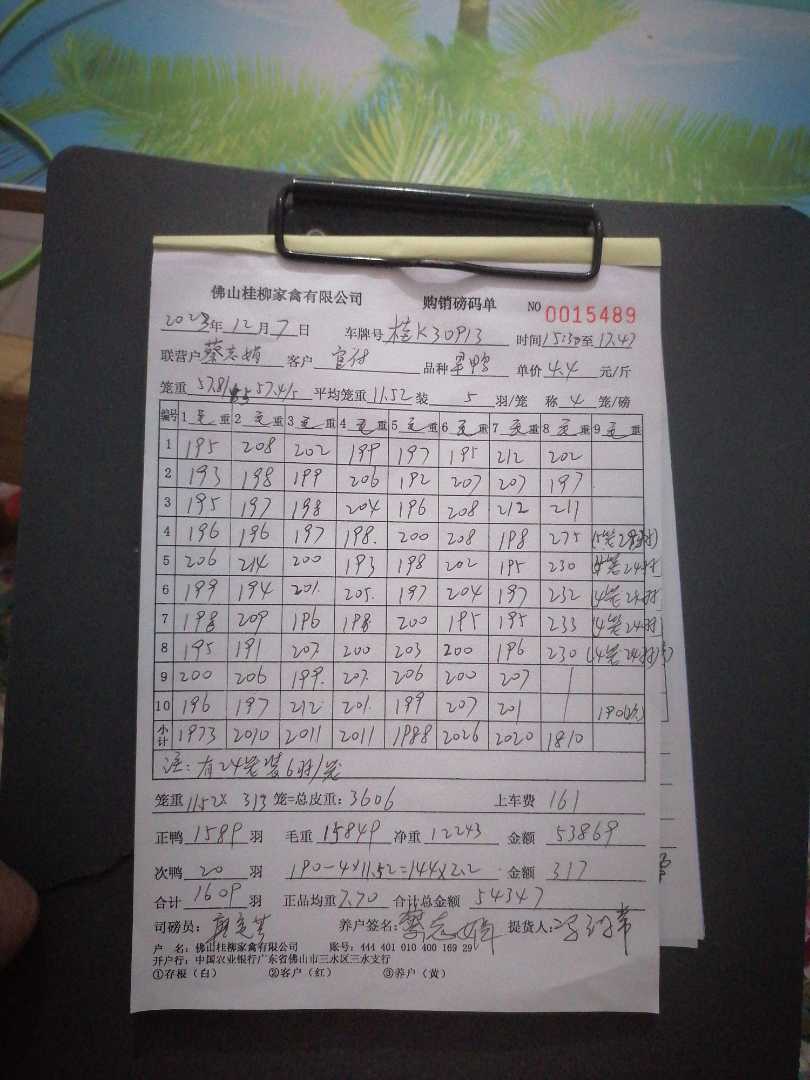 佛山桂柳家禽有限公司 购销磅码单 NO 0015489
2023年12月7日 车牌号 桂K30913 时间15:30至17:47
联营户 蔡志娟 客户 品种 单价 4.4 元/斤
笼重 57.81 57.41/5 平均笼重 11.52 装 5 羽/笼 称 4 笼/磅
编号 1 毛 重 2 毛 重 3 毛 重 4 毛 重 5 毛 重 6 毛 重 7 毛 重 8 毛 重 9 毛 重
1 195 208 202 199 197 195 212 202
2 193 198 199 206 192 207 207 197
3 195 197 198 204 196 208 212 211
4 196 196 197 198. 200 208 198 275 (5笼29羽)
5 206 214 200 193 198 202 195 230 (4笼24羽
6 199 194 201. 205. 197 204 197 232 (4笼24羽
7 198 209 196 198 200 195 195 233 (4笼24羽)
8 195 191 207. 200 203 200 196 230 (4笼24羽)
9 200 206 199. 207. 206 200 207
10 196 197 212. 201. 199 207 201 190(次)
小计 1973 2010 2011 2011 1988 2026 2020 1810
注:有24笼装6羽/笼
笼重 11.52X 313 笼=总皮重:3606 上车费 161
正鸭 1589 羽 毛重 15849 净重 12243 金额 53869
次鸭 20 羽 190-4X11.52=144X2.2 金额 317
合计 1609 羽 正品均重 7.70 合计总金额 54347
司磅员: 养户签名:蔡志娟 提货人:
户 名:佛山桂柳家禽有限公司 账号:444 401 010 400 169 29
开户行:中国农业银行广东省佛山市三水区三水支行
①存根(白) ②客户(红) ③养户(黄)